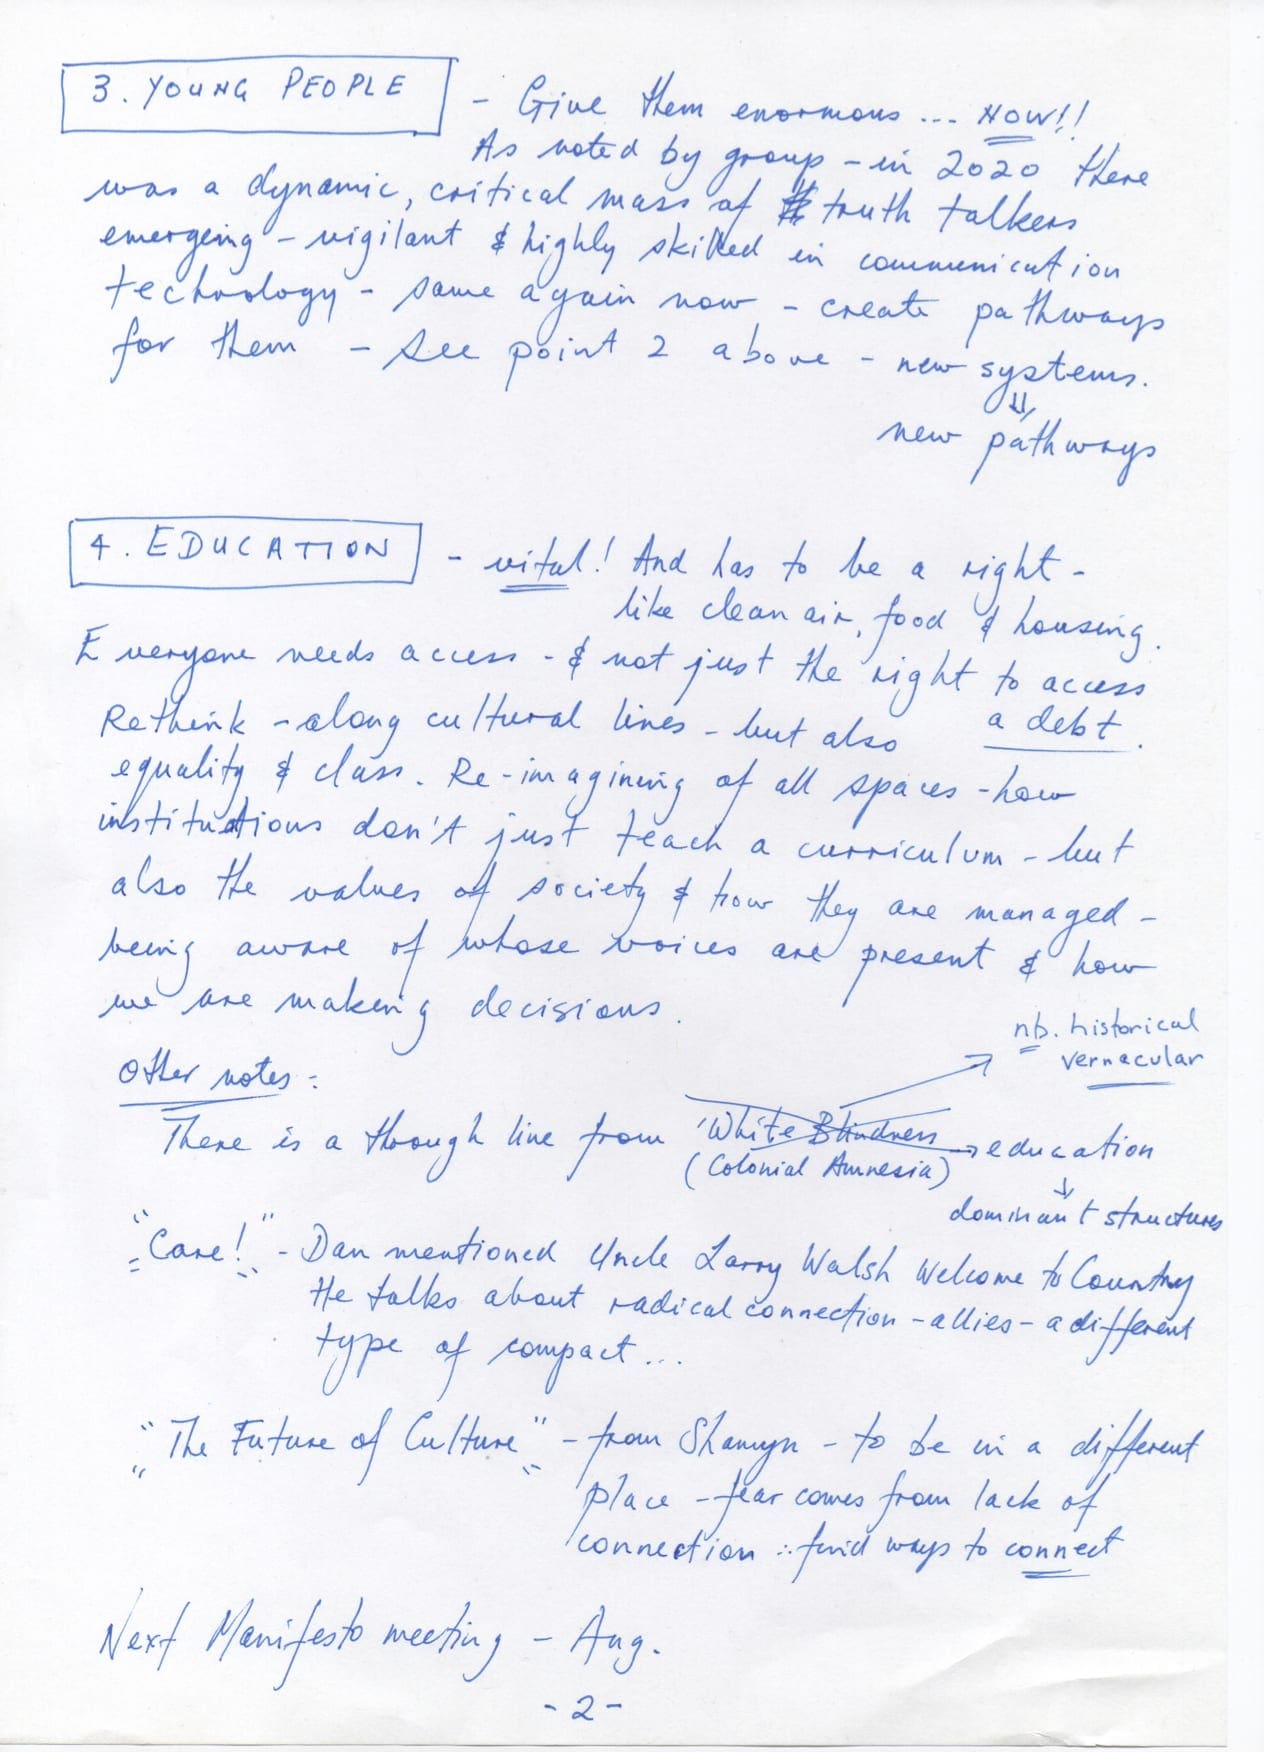 3. YOUNG PEOPLE - Give them enormous ... NOW!!
As noted by group - in 2020 there
was a dynamic, critical mass of truth talkers
emergeing - vigilant & highly skilled in communication
technology - same again now - create pathways
for them - see point 2 above - new systems.
⇓
new pathways
4. EDUCATION - vital! And has to be a right -
like clean air, food & housing.
Everyone needs access - & not just the right to access
a debt.
Rethink - along cultural lines - but also
equality & class. Re-imagining of all spaces - how
institutions don't just teach a curriculum - but
also the values of society & how they are managed -
being aware of whose voices are present & how
we are making decisions.
nb. historical
vernacular
Other notes:
There is a through line from 'White Blindness → education
(Colonial Amnesia)
↓
dominant structures
"Care!" - Dan mentioned Uncle Larry Walsh Welcome to Country
He talks about radical connection - allies - a different
type of compact ...
"The Future of Culture" - from Shamyn - to be in a different
place - fear comes from lack of
connection ∴ find ways to connect
Next Manifesto meeting - Aug.
- 2 -